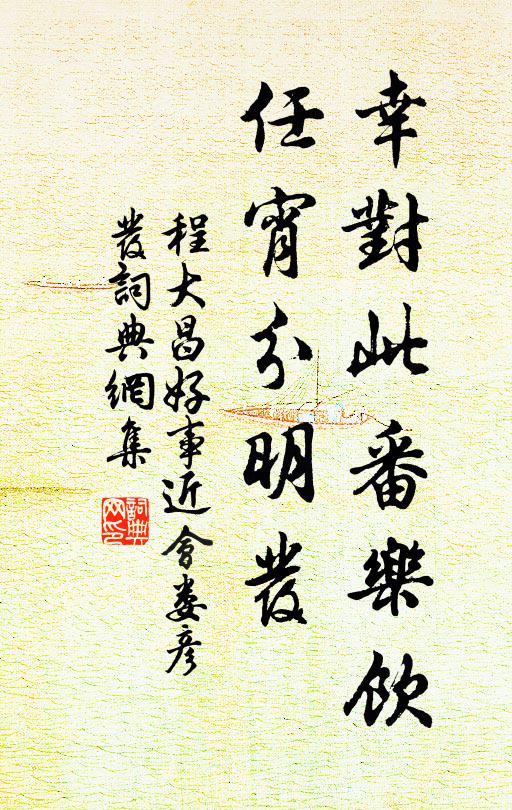 幸對此番樂飲
任宵分明發
程大昌好事近會婁彦
發詞典網集
詞典
网印